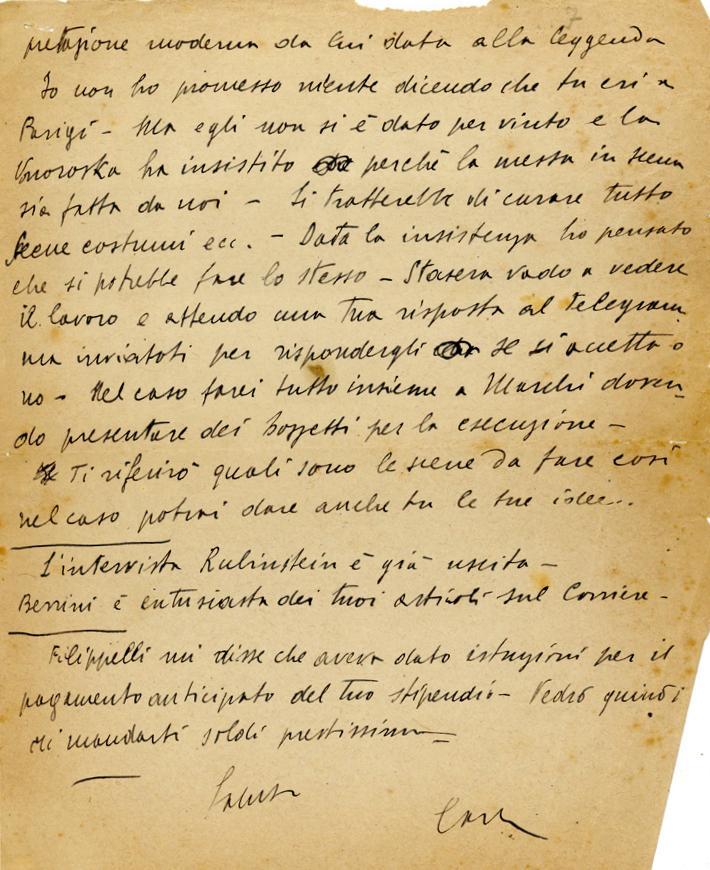 pretazione moderna da lui data alla leggenda
Io non ho promesso niente dicendo che tu eri a
Parigi – Ma egli non si è dato per vinto e la
ha insistito perchè la messa in scena
sia fatta da noi – Si tratterebbe di curare tutto
scene costumi ecc. – Data la insistenza ho pensato
che si potrebbe fare lo stesso – Stasera vado a vedere
il lavoro e attendo una tua risposta al telegram
ma inviatoti per rispondergli se si accetta o
no – Nel caso farei tutto insieme a Marchi doven
do presentare dei bozzetti per la esecuzione –
Ti riferirò quali sono le scene da fare così
nel caso potrai dare anche tu le tue idee..
L'intervista Rubinstein è già uscita –
Berrini è entusiasta dei tuoi articoli sul Corriere –
Filippelli mi disse che aveva dato istruzioni per il
pagamento anticipato del tuo stipendio – Vedrò quindi
di mandarti soldi prestissimo –
Saluti